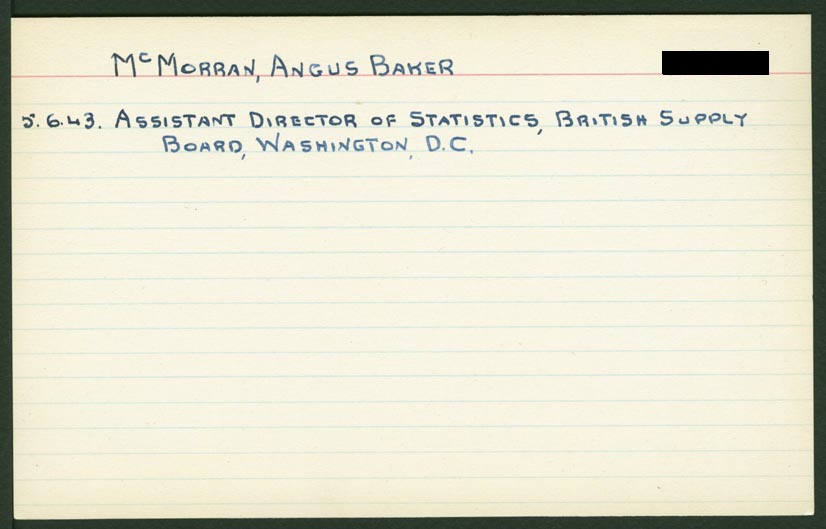 McMORRAN, ANGUS BAKER
5.6.43. ASSISTANT DIRECTOR OF STATISTICS, BRITISH SUPPLY
BOARD, WASHINGTON, D.C.